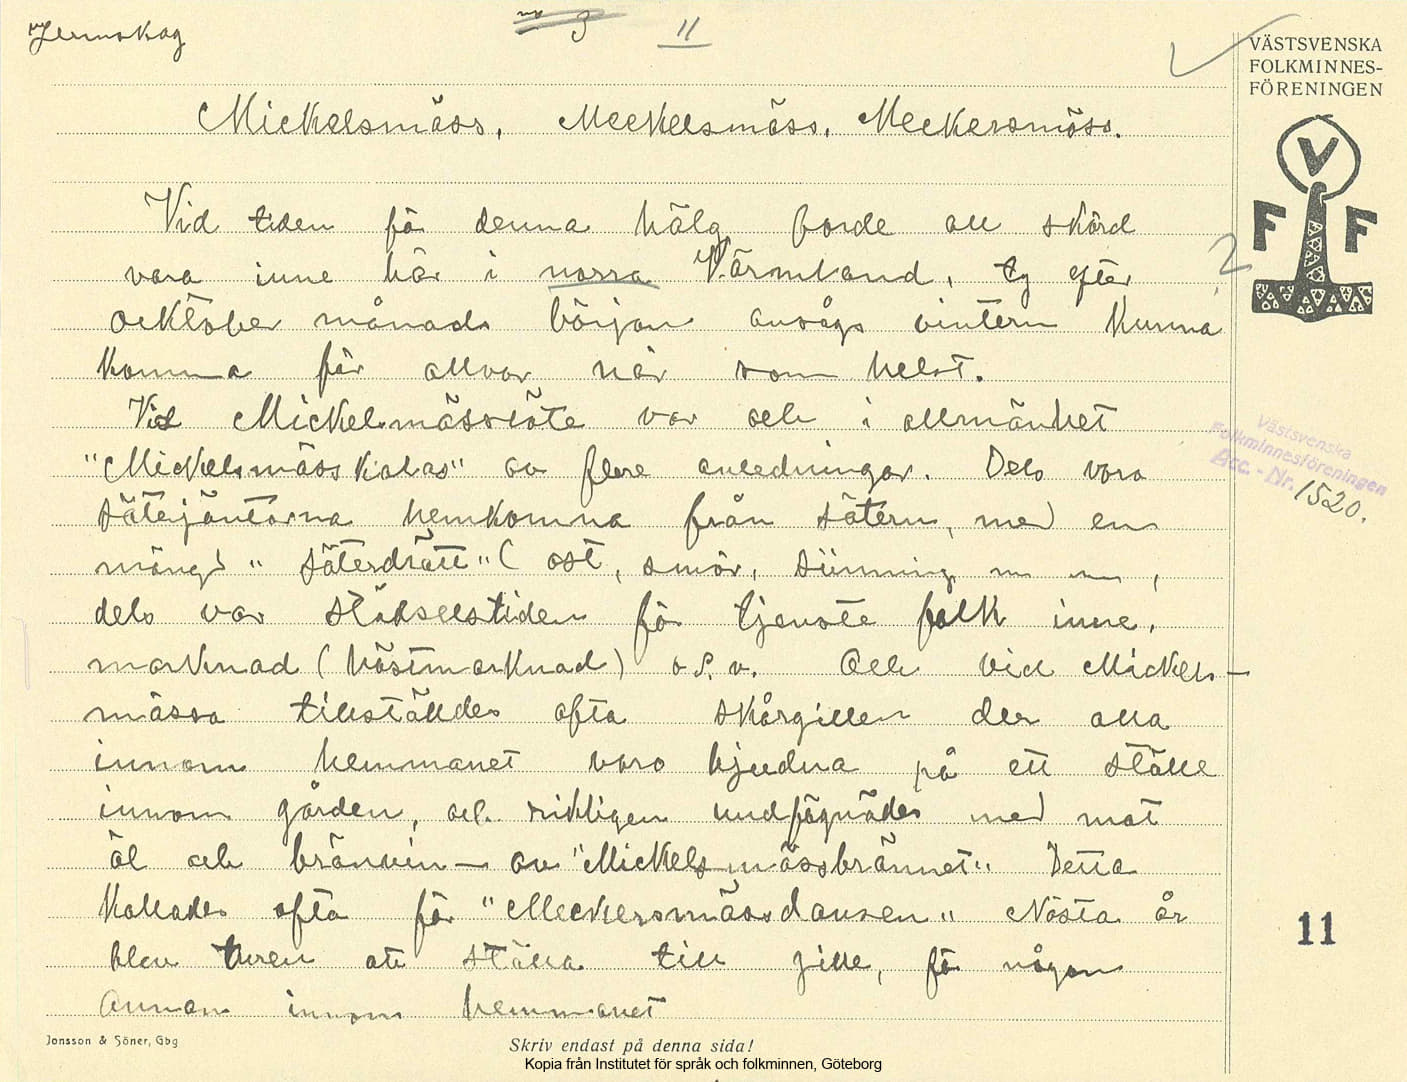 Järnskog
3 11
VÄSTSVENSKA
FOLKMINNES-
FÖRENINGEN
V
F F
Mickelsmäss, Meckelsmäss, Meckersmäss.
Vid tiden för denna hälg borde all skörd
vara inne här i norra Värmland, ty efter
2
ocktober månads början ansågs vintern kunna
komma för allvar när som helst.
Vid Mickelsmässtöte var och i allmänhet
"Mickelsmässkalas" av flere anledningar. Dels voro
Västsvenska
Folkminnesföreningen
Acc.-Nr. 1520.
säterjäntorna hemkomna från sätern, med en
mängd "säterdrått" ( ost, smör,
dels var städselstiden för tjenste folk inne,
marknad (höstmarknad) o.s.v. Och vid Mickels-
mässa tillställdes ofta skårgillen der alla
innom hemmanet voro bjudna på ett ställe
innom gården, och rikligen undfägnades med mat
öl och bränvin — av "Mickelsmässbrännet" Detta
kallades ofta för "Meckersmässdansen" Nästa år
blev turen att ställa till gille, för någon
annan innom hemmanet
11
Jonsson & Söner, Gbg
Skriv endast på denna sida!
Kopia från Institutet för språk och folkminnen, Göteborg